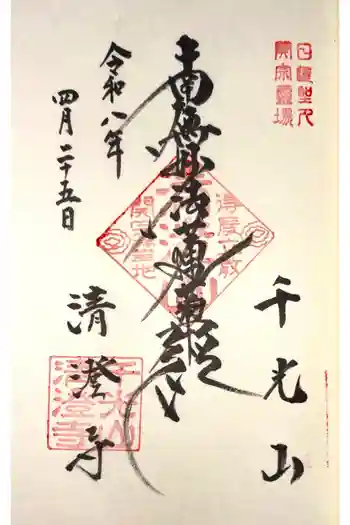 日蓮聖人
開宗霊場
千光山
南無妙法蓮華経
清澄寺
令和八年
四月二十五日
千光山
清澄寺